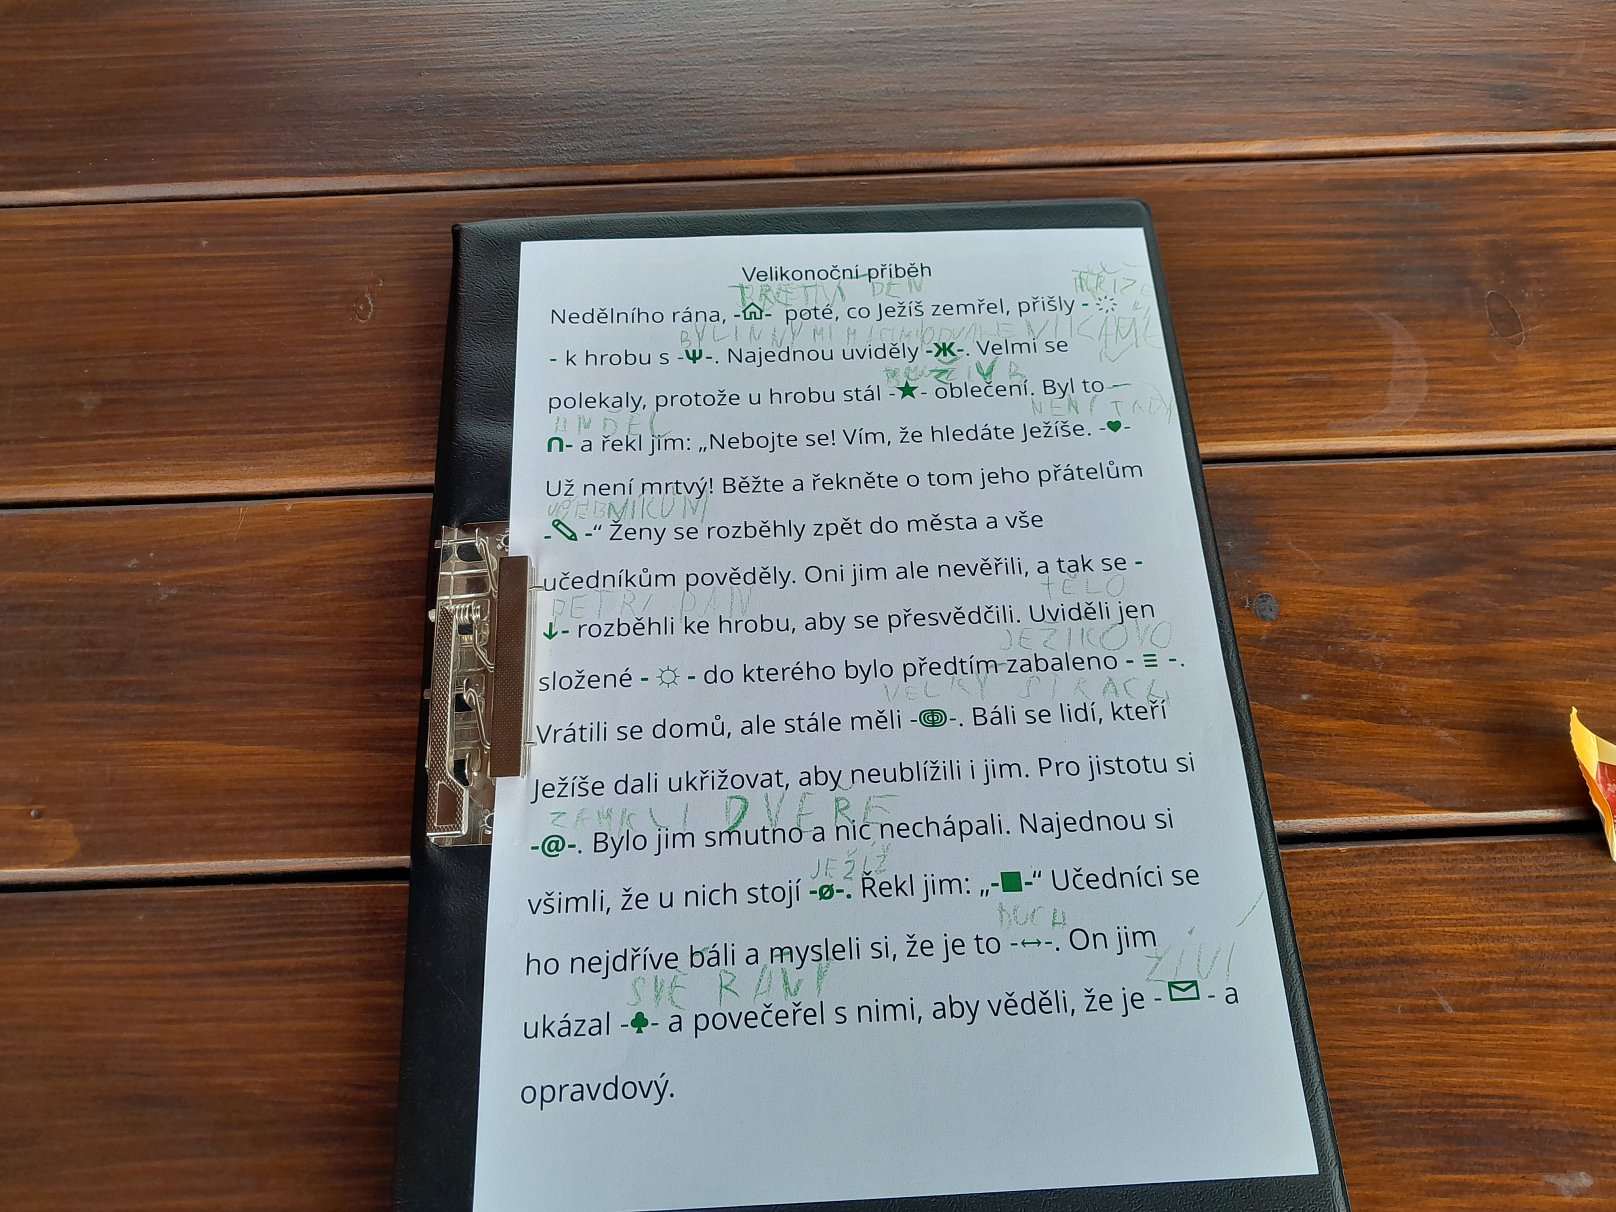 Velikonoční příběh
TŘETÍ DEN
Nedělního rána, -⌂- poté, co Ježíš zemřel, přišly -
- k hrobu s -Ψ-. Najednou uviděly -Ж-. Velmi se
polekaly, protože u hrobu stál -★- oblečení. Byl to –
NENÍ TADY
ANDĚL
∩- a řekl jim: „Nebojte se! Vím, že hledáte Ježíše. -♥-
Už není mrtvý! Běžte a řekněte o tom jeho přátelům
-✎-“ Ženy se rozběhly zpět do města a vše
učedníkům pověděly. Oni jim ale nevěřili, a tak se -
TĚLO
PETR
↓- rozběhli ke hrobu, aby se přesvědčili. Uviděli jen
JEŽÍKOVO
složené - ☼ - do kterého bylo předtím zabaleno - ≡ -.
VELKÝ STRACH
Vrátili se domů, ale stále měli -◎-. Báli se lidí, kteří
Ježíše dali ukřižovat, aby neublížili i jim. Pro jistotu si
ZAMKLI DVEŘE
-@-. Bylo jim smutno a nic nechápali. Najednou si
JEŽÍŽ
všimli, že u nich stojí -ø-. Řekl jim: „-■-“ Učedníci se
DUCH
ho nejdříve báli a mysleli si, že je to -↔-. On jim
ŽIVÍ
SVÉ RÁNY
ukázal -♣- a povečeřel s nimi, aby věděli, že je - ✉ - a
opravdový.